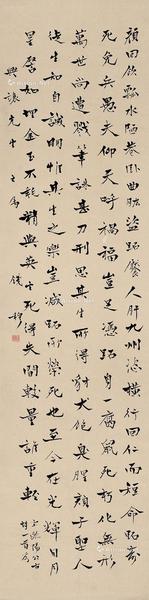 顏回飲瓢水陋巷卧曲肱盜跖饜人肝九州恣橫行回仁而短命跖壽
死免兵愚夫仰天呼禍福豈足憑跖身一腐鼠死朽化無形
萬世尚遭戮筆誅甚刀刑思其生所得豺犬飽臭腥顏子聖人
徒生知自誠明惟其生之樂豈減跖所榮死也至今在光輝日月
星譬如埋金玉不耗精與英生死得失間較量誰重輕
歐陽公古
詩一首
興讓先生之属 錢穆